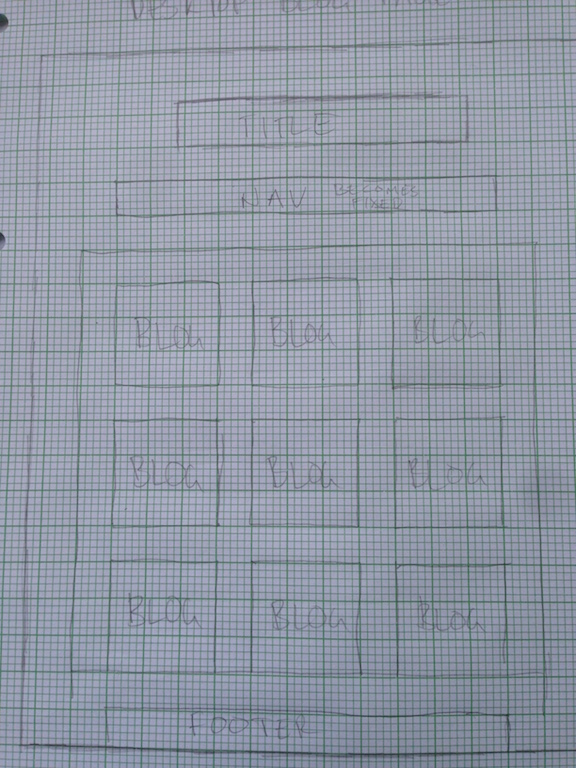 DESKTOP BLOG PAGE
TITLE
NAV BECOMES
FIXED
BLOG BLOG BLOG
BLOG BLOG BLOG
BLOG BLOG BLOG
FOOTER